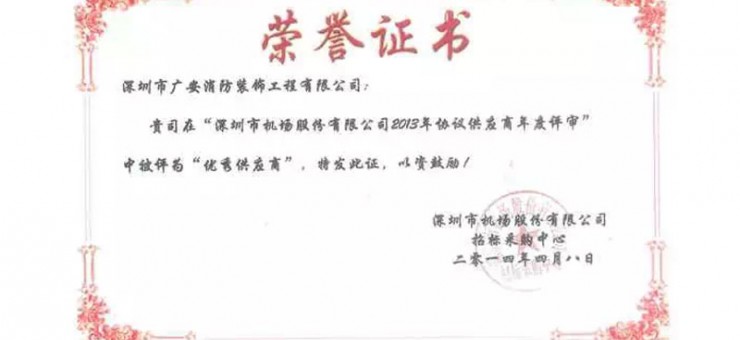 荣誉证书
深圳市广安消防装饰工程有限公司：
贵司在“深圳市机场股份有限公司2013年协议供应商年度评审”
中被评为“优秀供应商”，特发此证，以资鼓励！
深圳市机场股份有限公司
招标采购中心
二零一四年四月八日